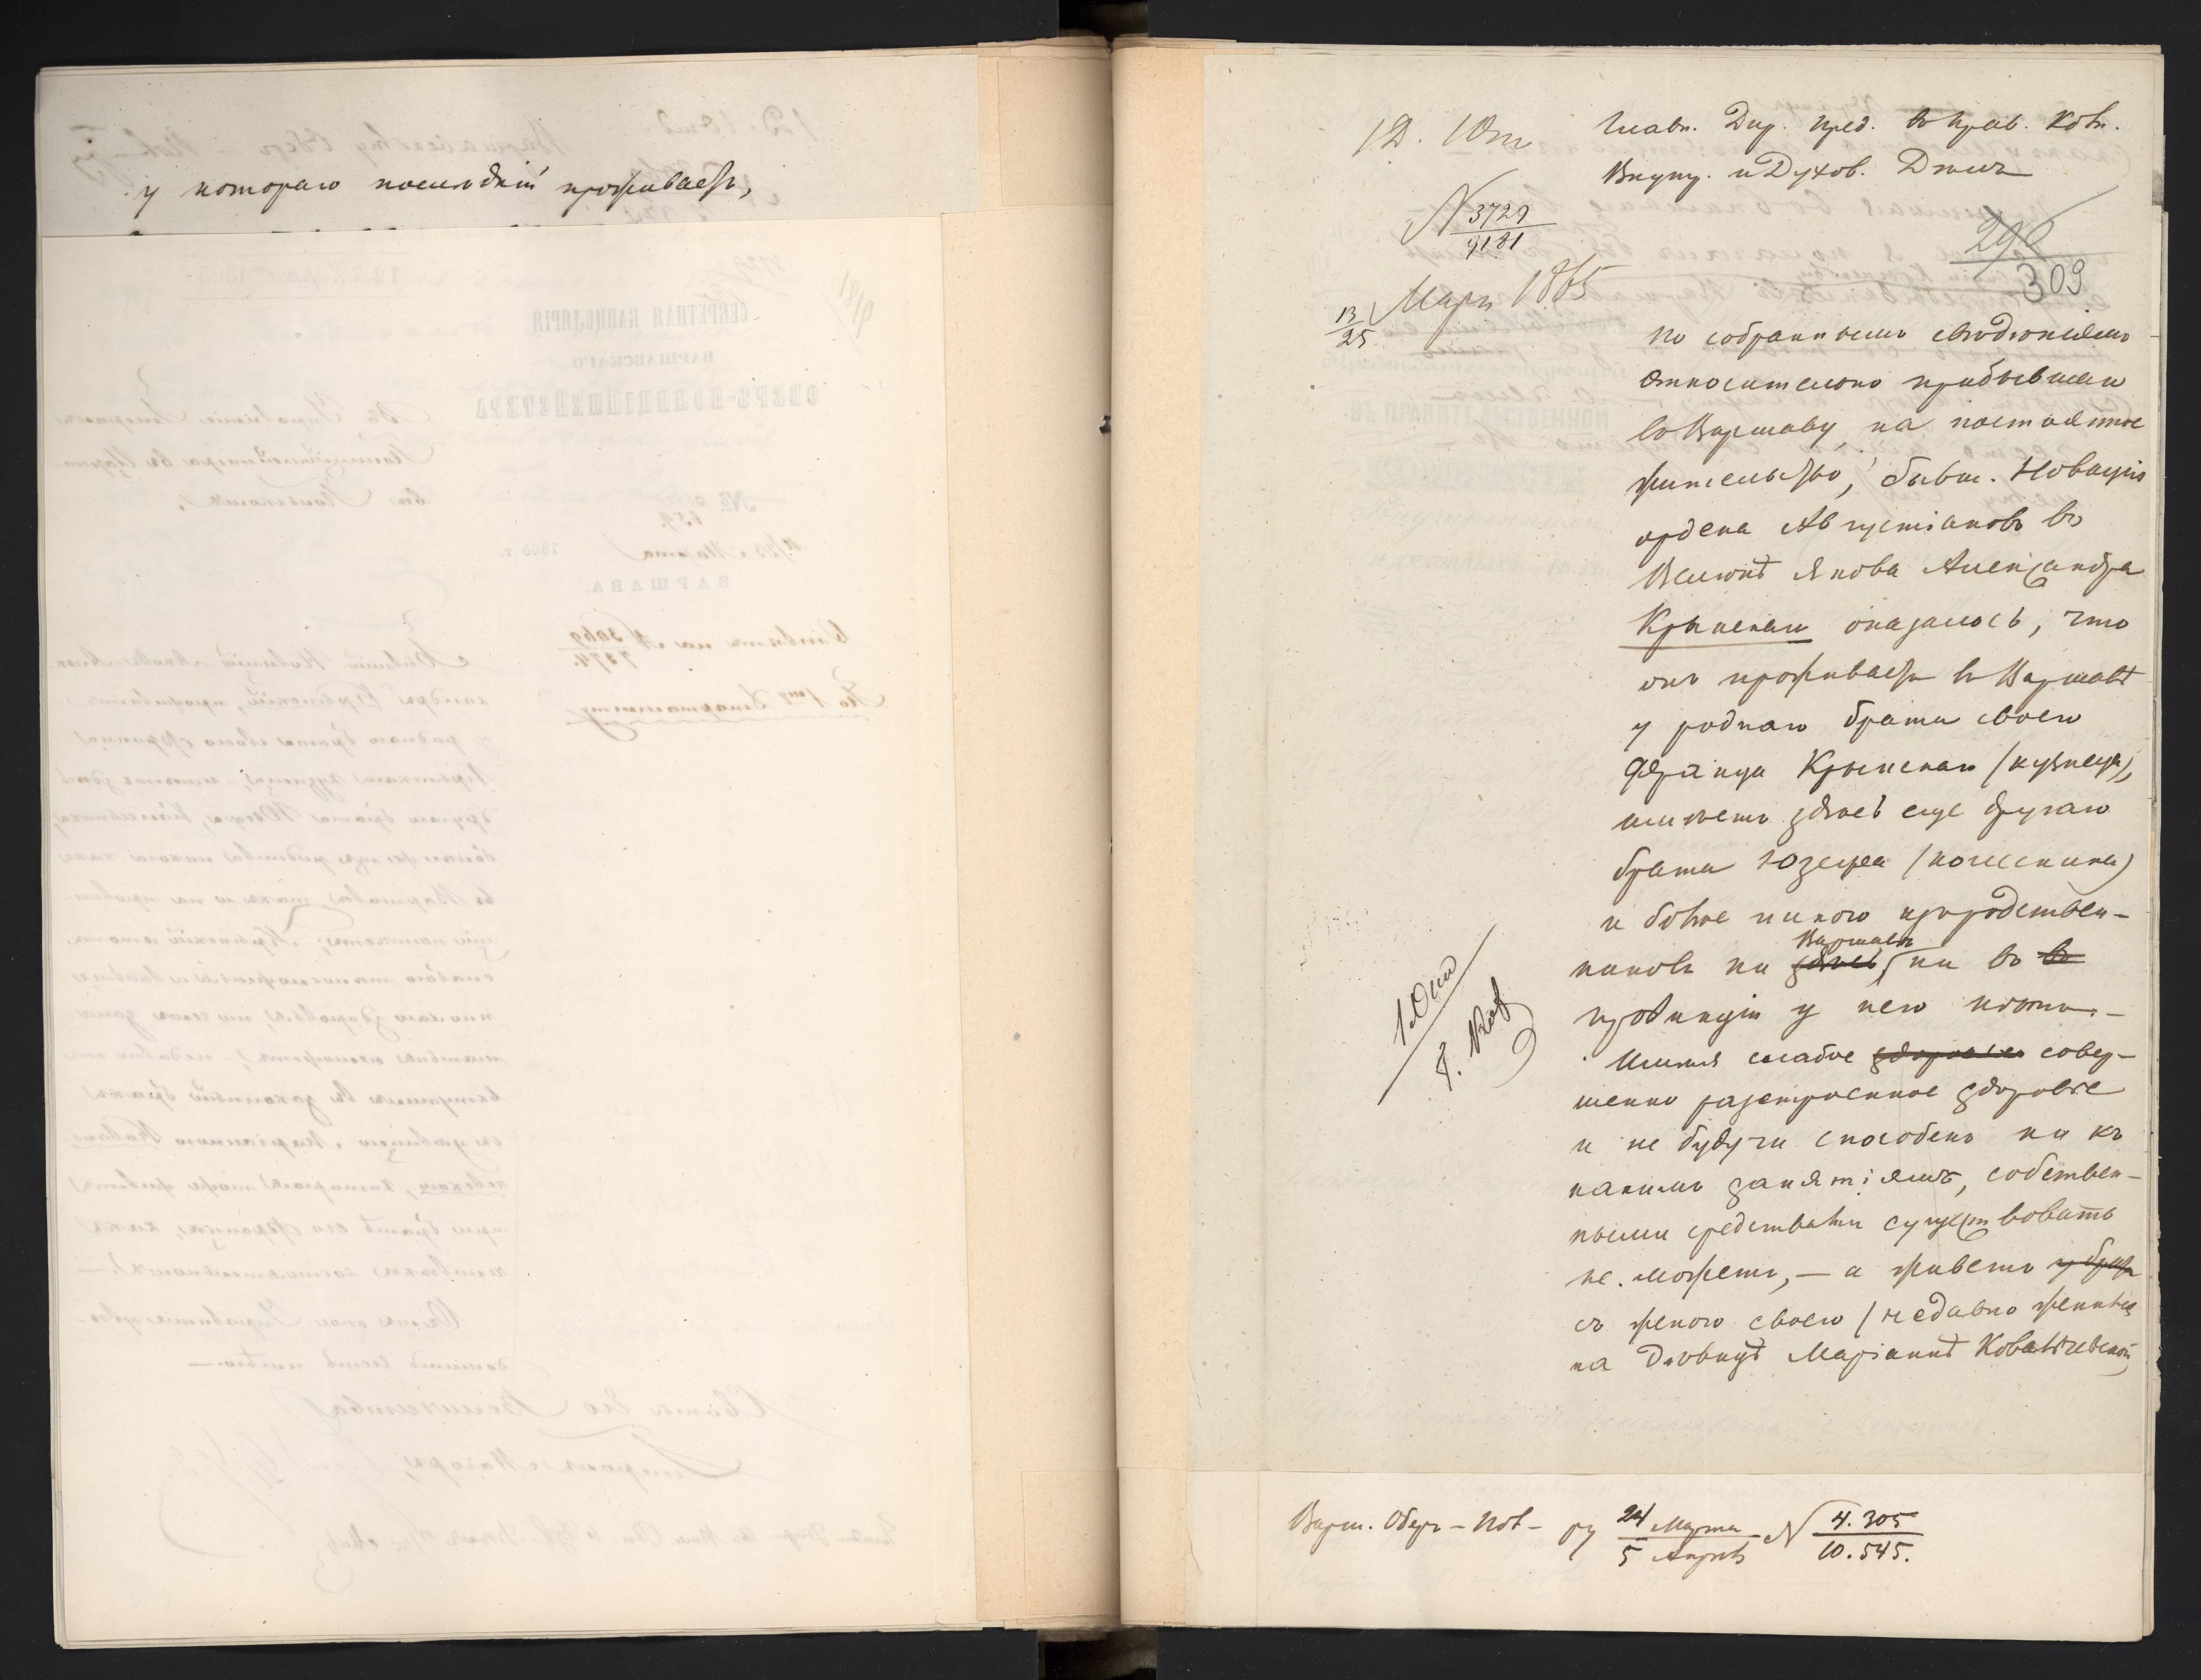 у котораго последній проживаетъ,
1 Д. 1 От.
Главн. Дир. Пред. въ Прав. Ком.
Внутр. и Духов. Делъ
N 3729
9181
296
309
13 Март 1865
25
По собраннымъ сведеніямъ
относительно прибывшаго
въ Варшаву, на постоянное
жительство, бывш. Новиція
ордена Августіановъ въ
Велюнѣ Якова Александра
Крынскаго оказалось, что
онъ проживаетъ въ Варшавѣ
у роднаго брата своего
Франца Крынскаго (кузнеца),
имѣетъ здѣсь еще другаго
брата Юзефа (колесника)
и болѣе никого изъ родствен-
Варшавѣ
никовъ ни здѣсь, ни въ въ
провинціи у него нѣтъ. -
Имѣя слабое здоровье совер-
шенно разстроенное здоровье
и не будучи способенъ ни къ
какимъ занятіямъ, собствен-
ными средствами существовать
не можетъ, - а живетъ у брата
съ женою своею (недавно женился
на Дѣвицѣ Маріаннѣ Ковальчевской,
Варш. Оберъ-Пол-ру 24 Марта N 4.305
5 Апрѣля 10.545.